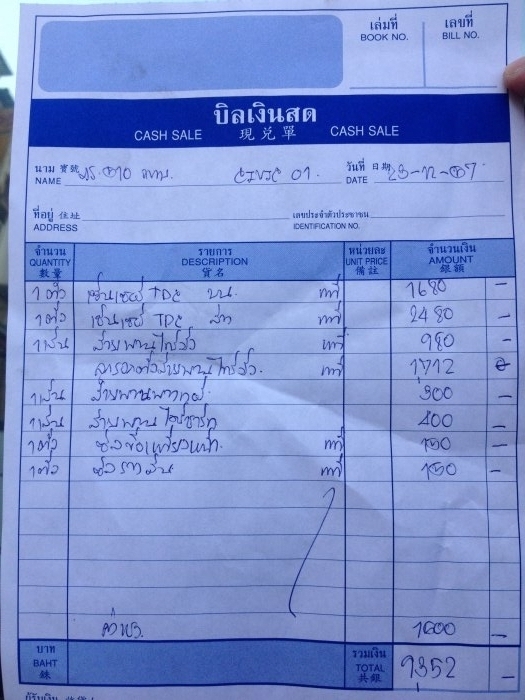 เล่มที่ เลขที่
BOOK NO. BILL NO.
บิลเงินสด
CASH SALE 現兑單 CASH SALE
นาม 寶號 CIVIC 01. วันที่ 日期 23-12-07
NAME DATE
ที่อยู่ 住址 เลขประจำตัวประชาชน
ADDRESS IDENTIFICATION NO.
จำนวน รายการ หน่วยละ จำนวนเงิน
QUANTITY DESCRIPTION UNIT PRICE AMOUNT
數量 貨名 備註 銀額
1 ตัว เซ็นเซอร์ TDC บน. แท้ 1680 -
1 ตัว เซ็นเซอร์ TDC แท้ 2480 -
1 เส้น สายพานไทม์มิ่ง แท้ 980 -
สายพานไทม์มิ่ง. แท้ 1712
1 เส้น สายพานพาวเวอร์ 300 -
1 เส้น สายพานไดชาร์จ 400 -
1 ตัว ซีลข้อเหวี่ยงหน้า. แท้ 150 -
1 ตัว ซีล แท้ 150 -
1600 -
บาท รวมเงิน
BAHT TOTAL 9352 -
銖 共銀